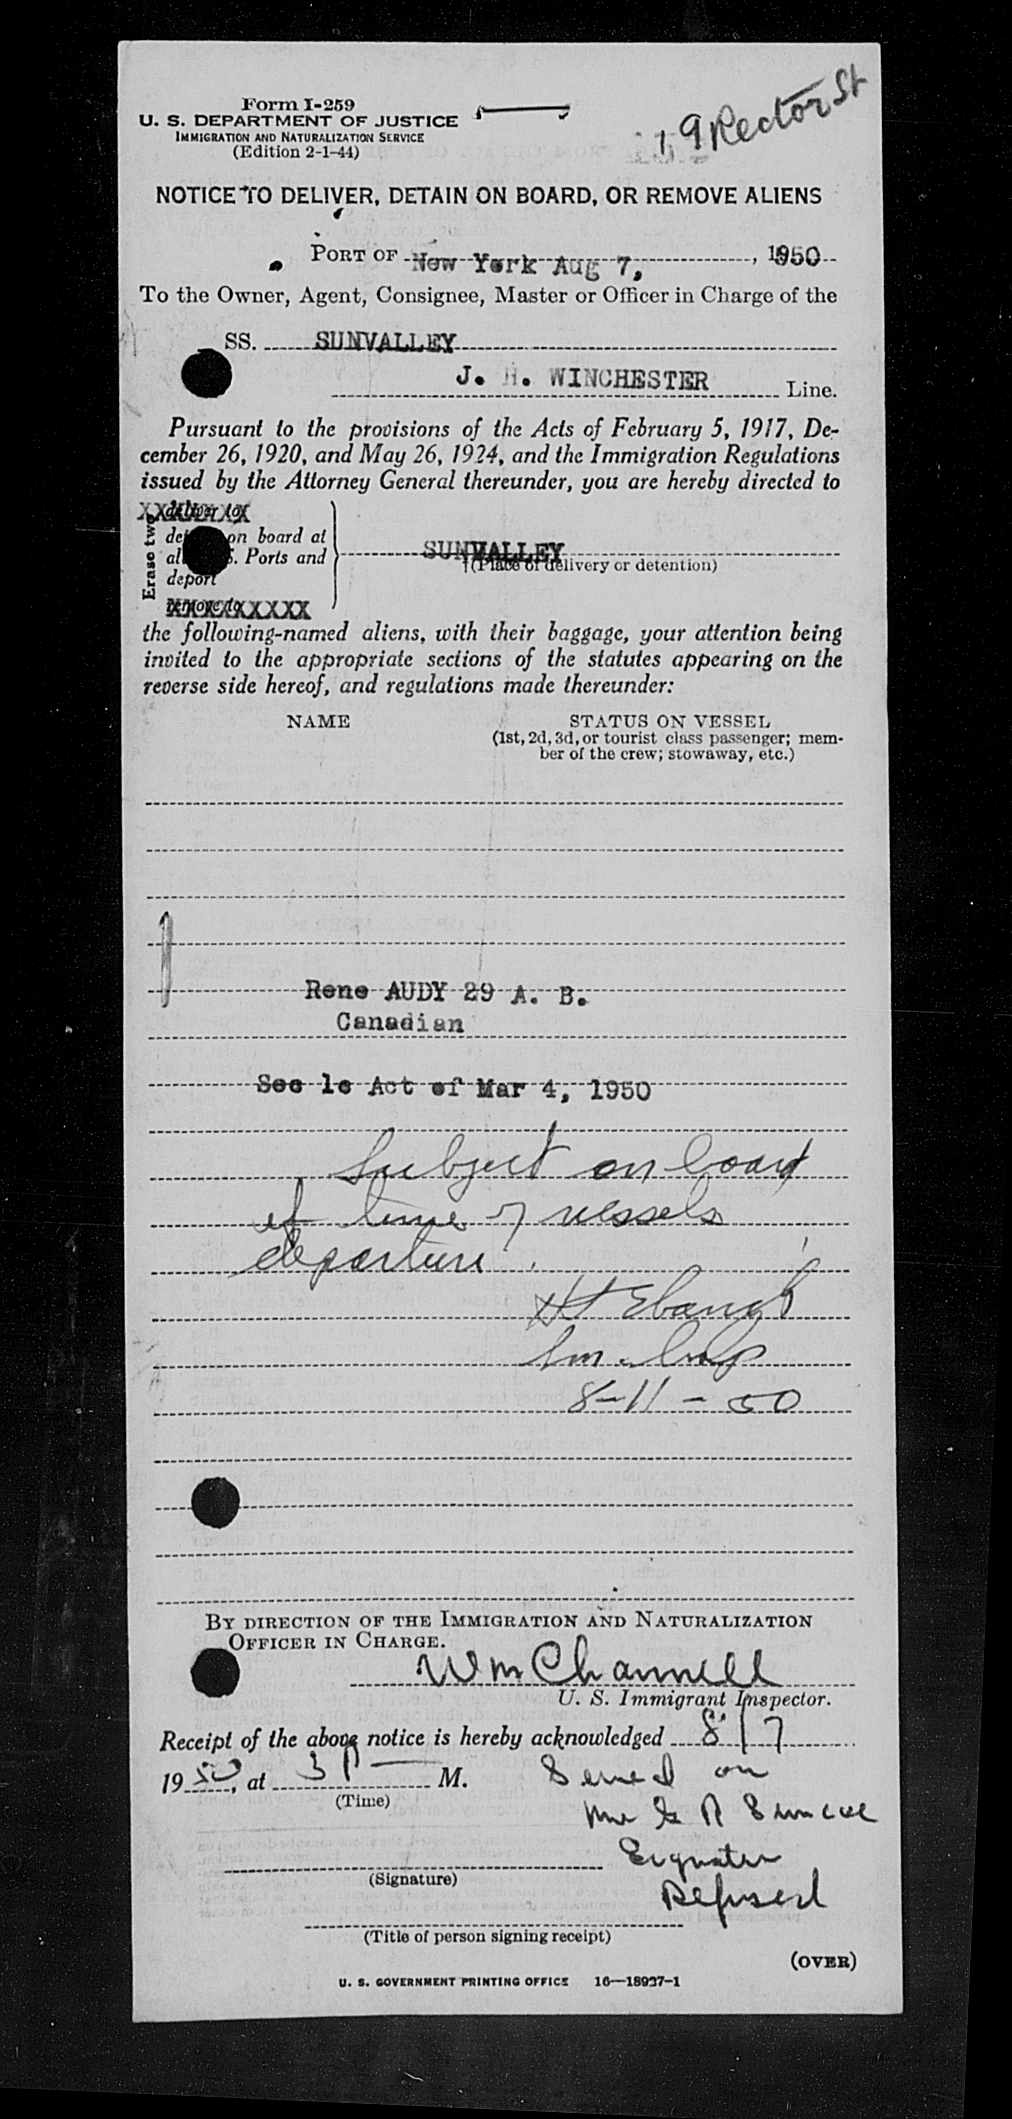 Form I-259
U. S. DEPARTMENT OF JUSTICE
IMMIGRATION AND NATURALIZATION SERVICE
(Edition 2-1-44)
19 Rector St
NOTICE TO DELIVER, DETAIN ON BOARD, OR REMOVE ALIENS
PORT OF New York Aug 7, , 1950
To the Owner, Agent, Consignee, Master or Officer in Charge of the
SS. SUNVALLEY
J. H. WINCHESTER Line.
Pursuant to the provisions of the Acts of February 5, 1917, De-
cember 26, 1920, and May 26, 1924, and the Immigration Regulations
issued by the Attorney General thereunder, you are hereby directed to
Erase two
deliver to
on board at
Ports and
deport
remove to
SUNVALLEY
(Place of delivery or detention)
the following-named aliens, with their baggage, your attention being
invited to the appropriate sections of the statutes appearing on the
reverse side hereof, and regulations made thereunder:
NAME STATUS ON VESSEL
(1st, 2d, 3d, or tourist class passenger; mem-
ber of the crew; stowaway, etc.)
Rene AUDY 29 A. B.
Canadian
Sec 1c Act of Mar 4, 1950
Subject on board
at time of vessels
departure.
8-11-50
BY DIRECTION OF THE IMMIGRATION AND NATURALIZATION
OFFICER IN CHARGE.
Wm Channell
U. S. Immigrant Inspector.
Receipt of the above notice is hereby acknowledged 8/7
1950, at 3 P M.
(Time)
Served on
Mr G R
Signature
Refused
(Signature)
(Title of person signing receipt)
(OVER)
U. S. GOVERNMENT PRINTING OFFICE 16—18937-1